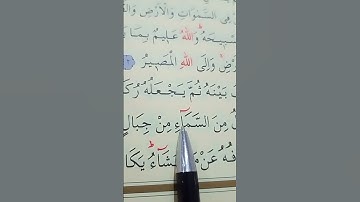 فِى السَّمٰوَاتِ وَالْاَرْضِ وَال
بِيحَهُ وَاللهُ عَلِيمٌ بِمَا يَ
ضِ وَاِلَى اللهِ الْمَصِيرُ
بَيْنَهُ ثُمَّ يَجْعَلُهُ رُكَ
مِنَ السَّمَاءِ مِنْ جِبَالٍ
فُهُ عَنْ مَ يَشَاءُ يَكَا